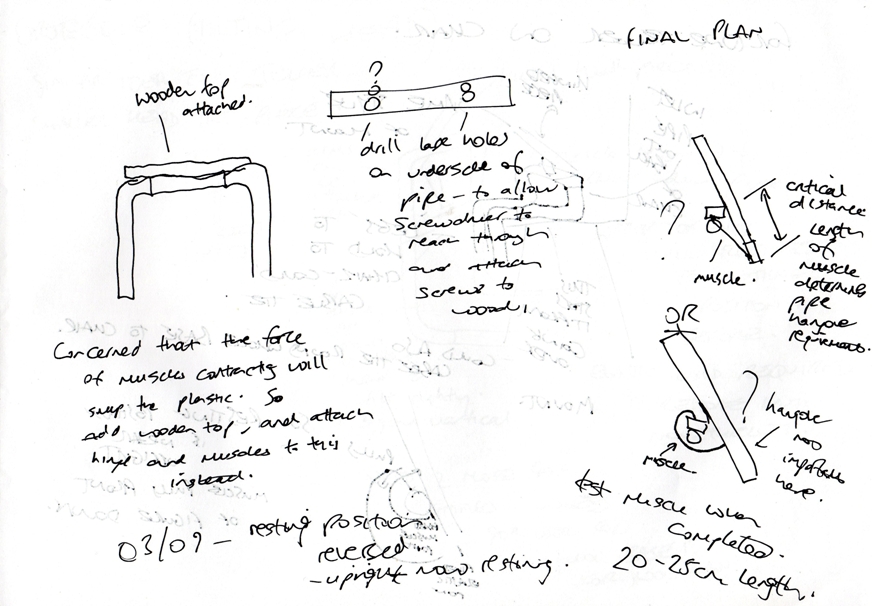 FINAL PLAN
wooden top
attached.
?
drill large holes
on underside of
pipe - to allow
screwdriver to
reach through
and attach
screws to
wood.
critical
distance
length
of
muscle
determines
pipe
?
muscle.
OR
?
not
important
here.
muscle
Concerned that the force
of muscles contracting will
snap the plastic. So
add wooden top, and attach
hinge and muscles to this
instead.
test muscle when
completed.
20-25cm length.
03/09 - resting position
reversed
- upright now resting.